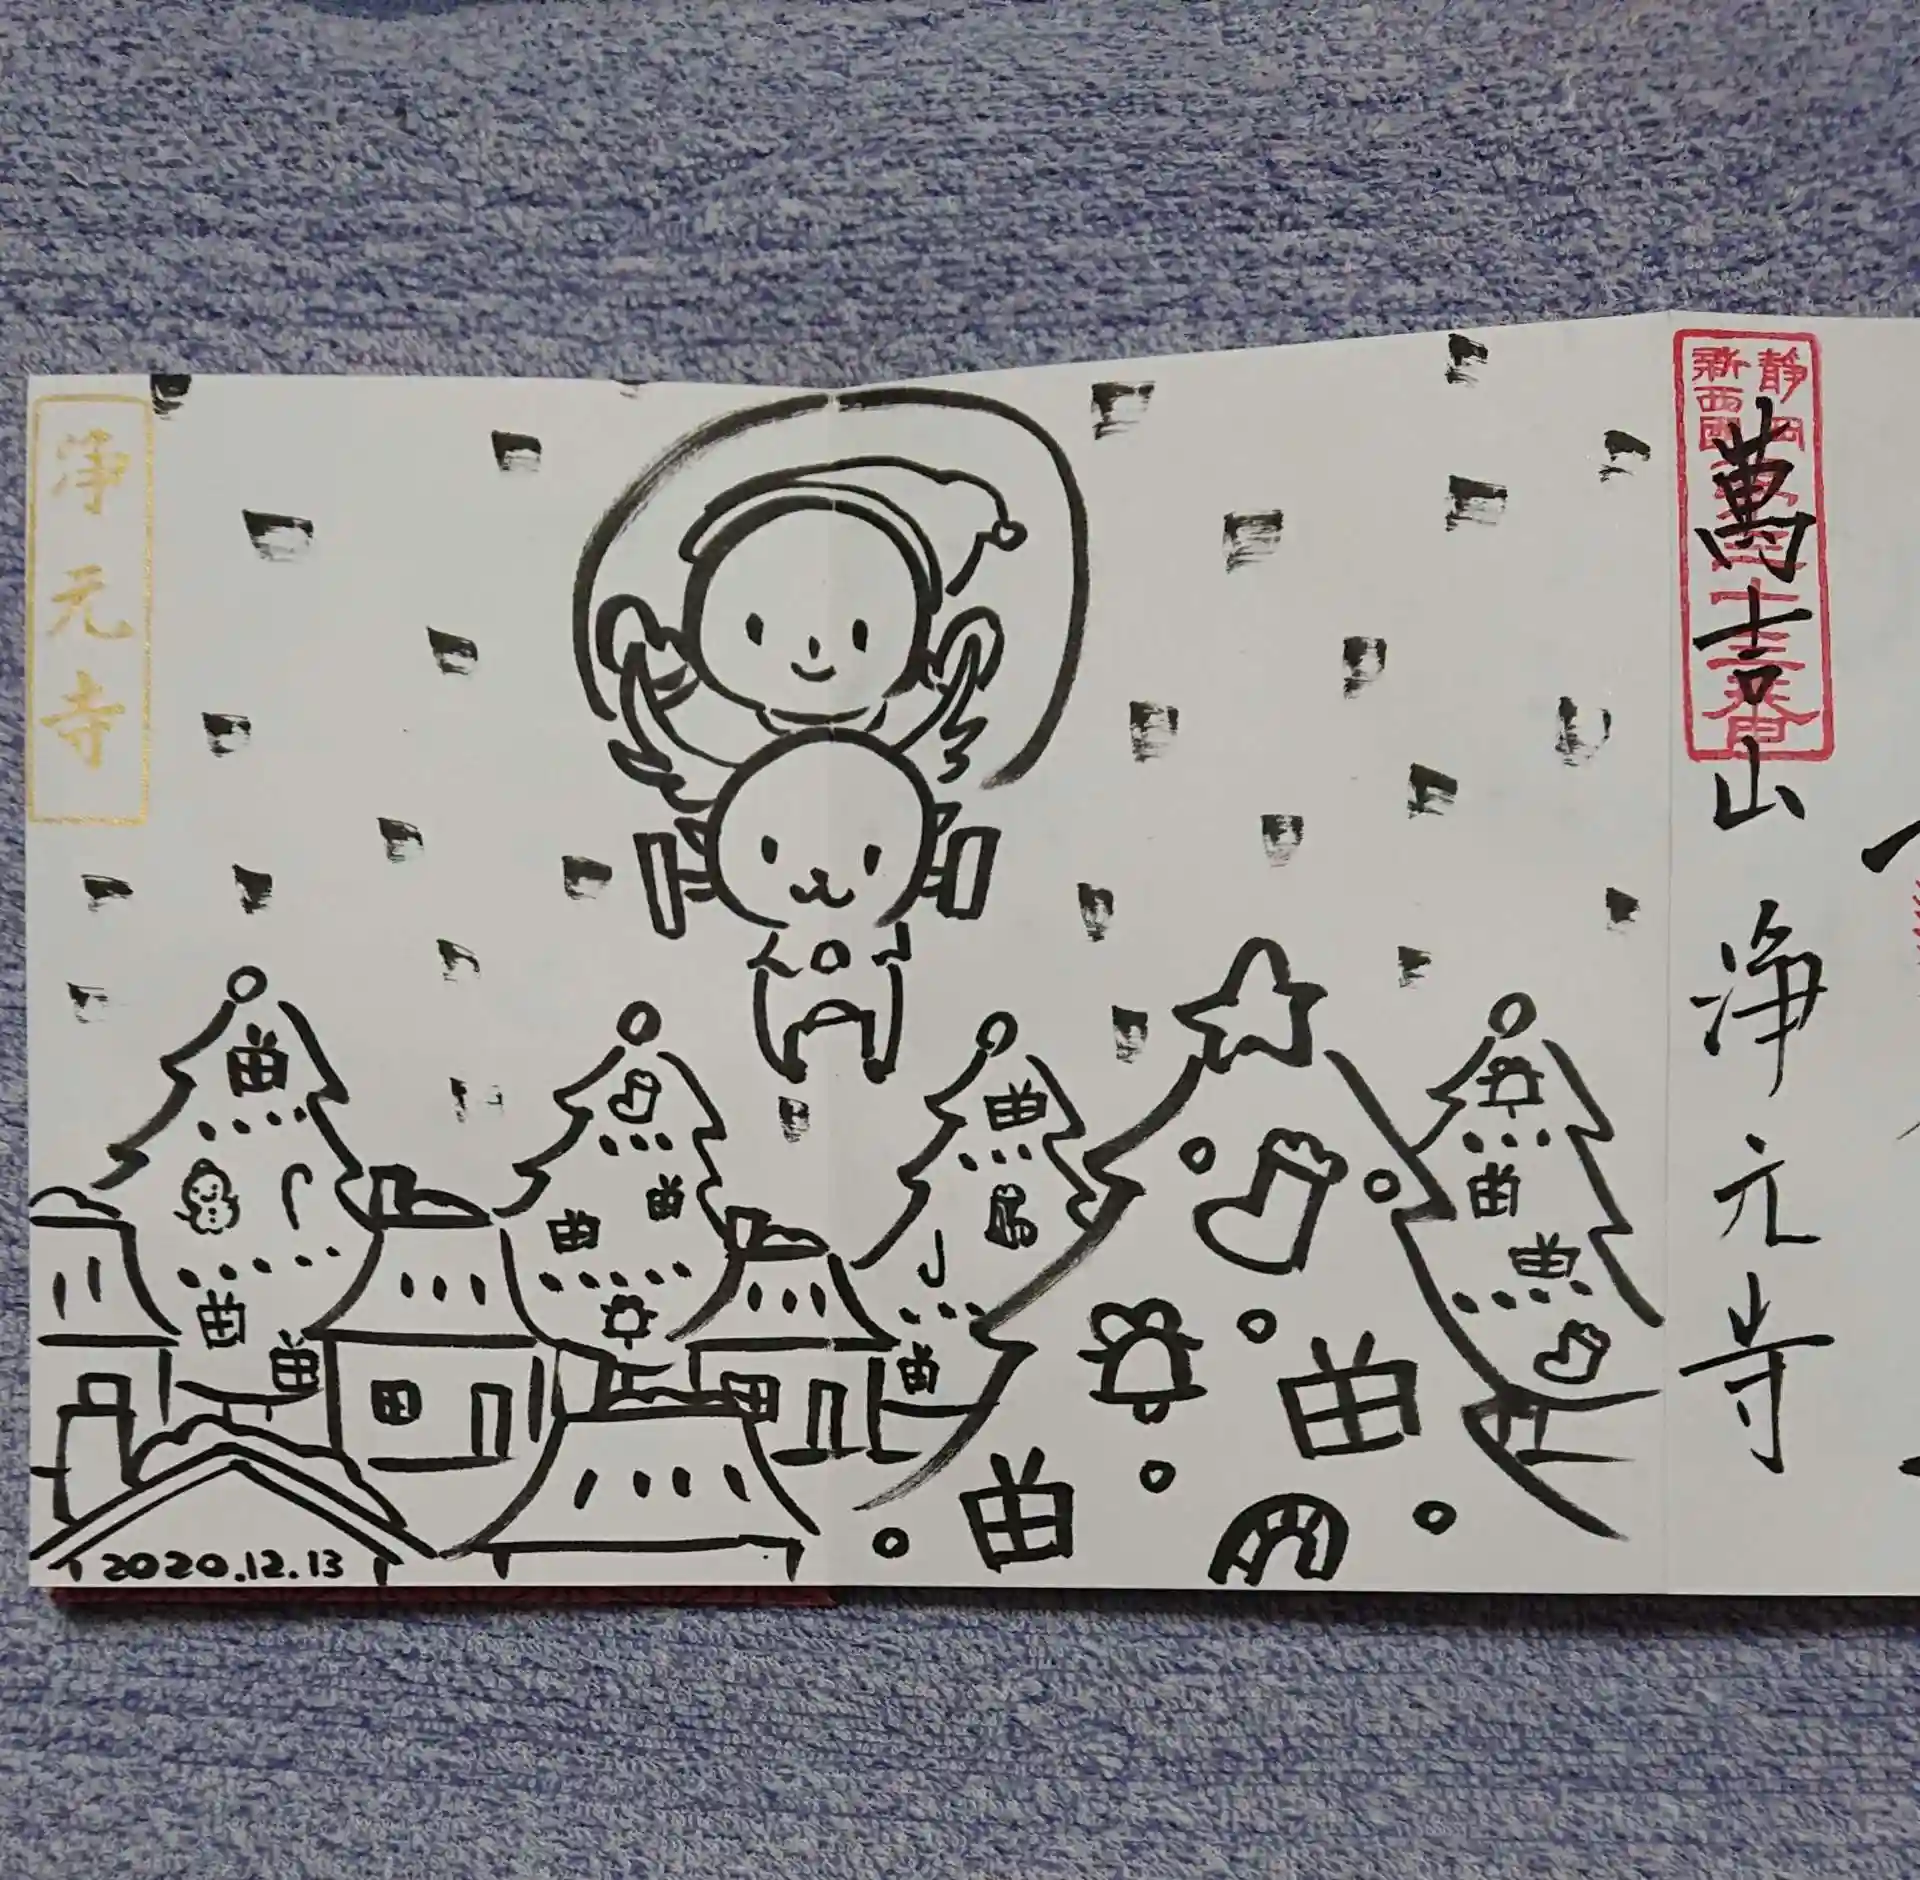 萬吉山浄元寺
静岡
新西国
十三番
浄元寺
2020.12.13